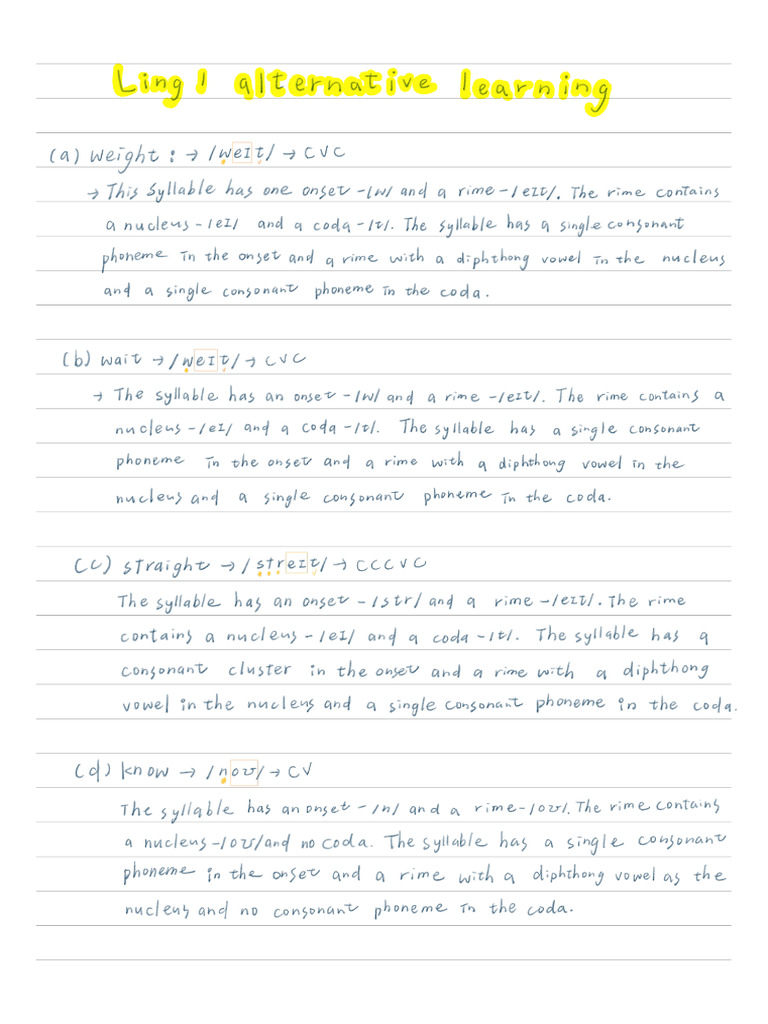 Ling 1 alternative learning
(a) weight : → /weIt/ → CVC
→ This syllable has one onset -/w/ and a rime -/eIt/. The rime contains
a nucleus -/eI/ and a coda -/t/. The syllable has a single consonant
phoneme in the onset and a rime with a diphthong vowel in the nucleus
and a single consonant phoneme in the coda.
(b) wait → /weIt/ → CVC
→ The syllable has an onset -/w/ and a rime -/eIt/. The rime contains a
nucleus -/eI/ and a coda -/t/. The syllable has a single consonant
phoneme in the onset and a rime with a diphthong vowel in the
nucleus and a single consonant phoneme in the coda.
(c) straight → /streIt/ → CCCVC
The syllable has an onset -/str/ and a rime -/eIt/. The rime
contains a nucleus -/eI/ and a coda -/t/. The syllable has a
consonant cluster in the onset and a rime with a diphthong
vowel in the nucleus and a single consonant phoneme in the coda.
(d) know → /noʊ/ → CV
The syllable has an onset -/n/ and a rime -/oʊ/. The rime contains
a nucleus -/oʊ/ and no coda. The syllable has a single consonant
phoneme in the onset and a rime with a diphthong vowel as the
nucleus and no consonant phoneme in the coda.